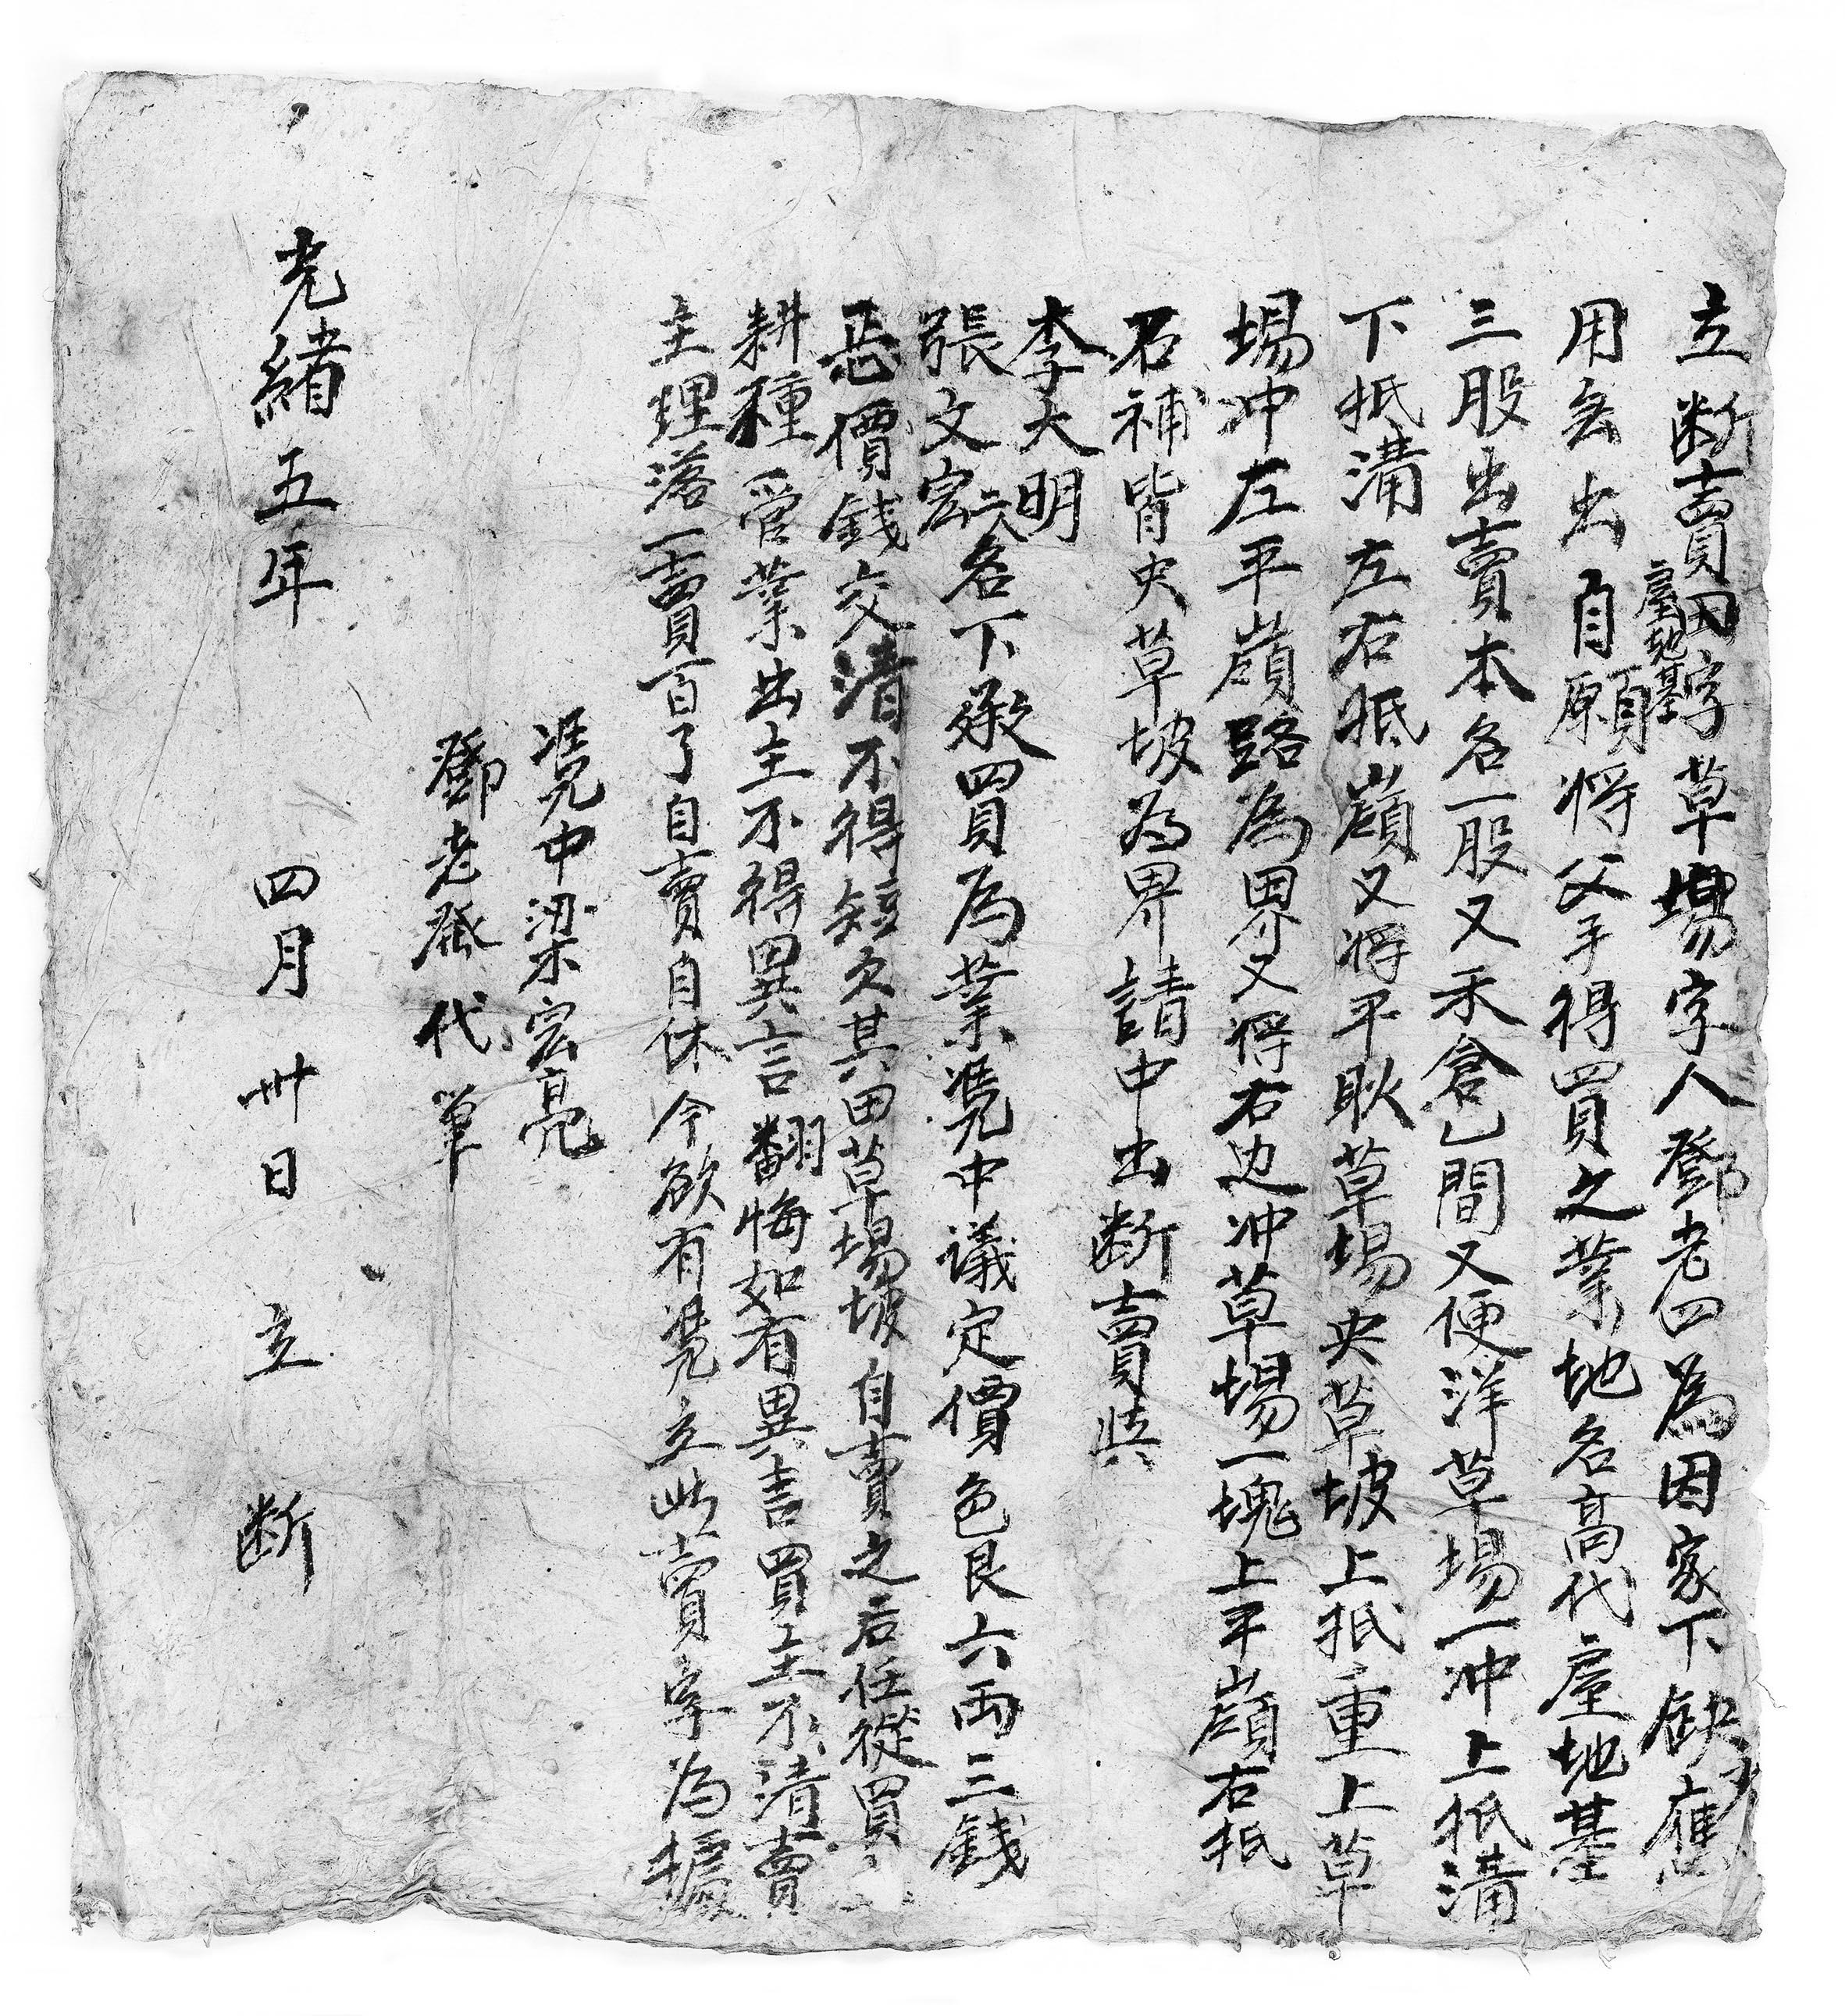 立断賣田字草塲字人鄧老四為因家下缺少應
屋地基
用無出自願将父手得買之業地名高代屋地基
三股出賣本名一股又禾倉乙間又便洋草塲一冲上抵溝
下抵溝左右抵嶺又将平耿草塲央草坡上抵重上草
塲冲左平嶺路為界又将右边冲草塲一塊上平嶺右抵
石補皆央草坡為界請中出断賣與
李大明
張文宏二人名下承買為業凴中議定價色艮六両三錢
價錢交清不得短欠其田草塲坡自賣之后任從買
耕種管業出主不得異言翻悔如有異言買主不清賣
主理落一賣百了自賣自休今欲有凴立此賣字為㨿
凴中梁宏亮
鄧老發代筆
光緒五年 四月卅日 立 断